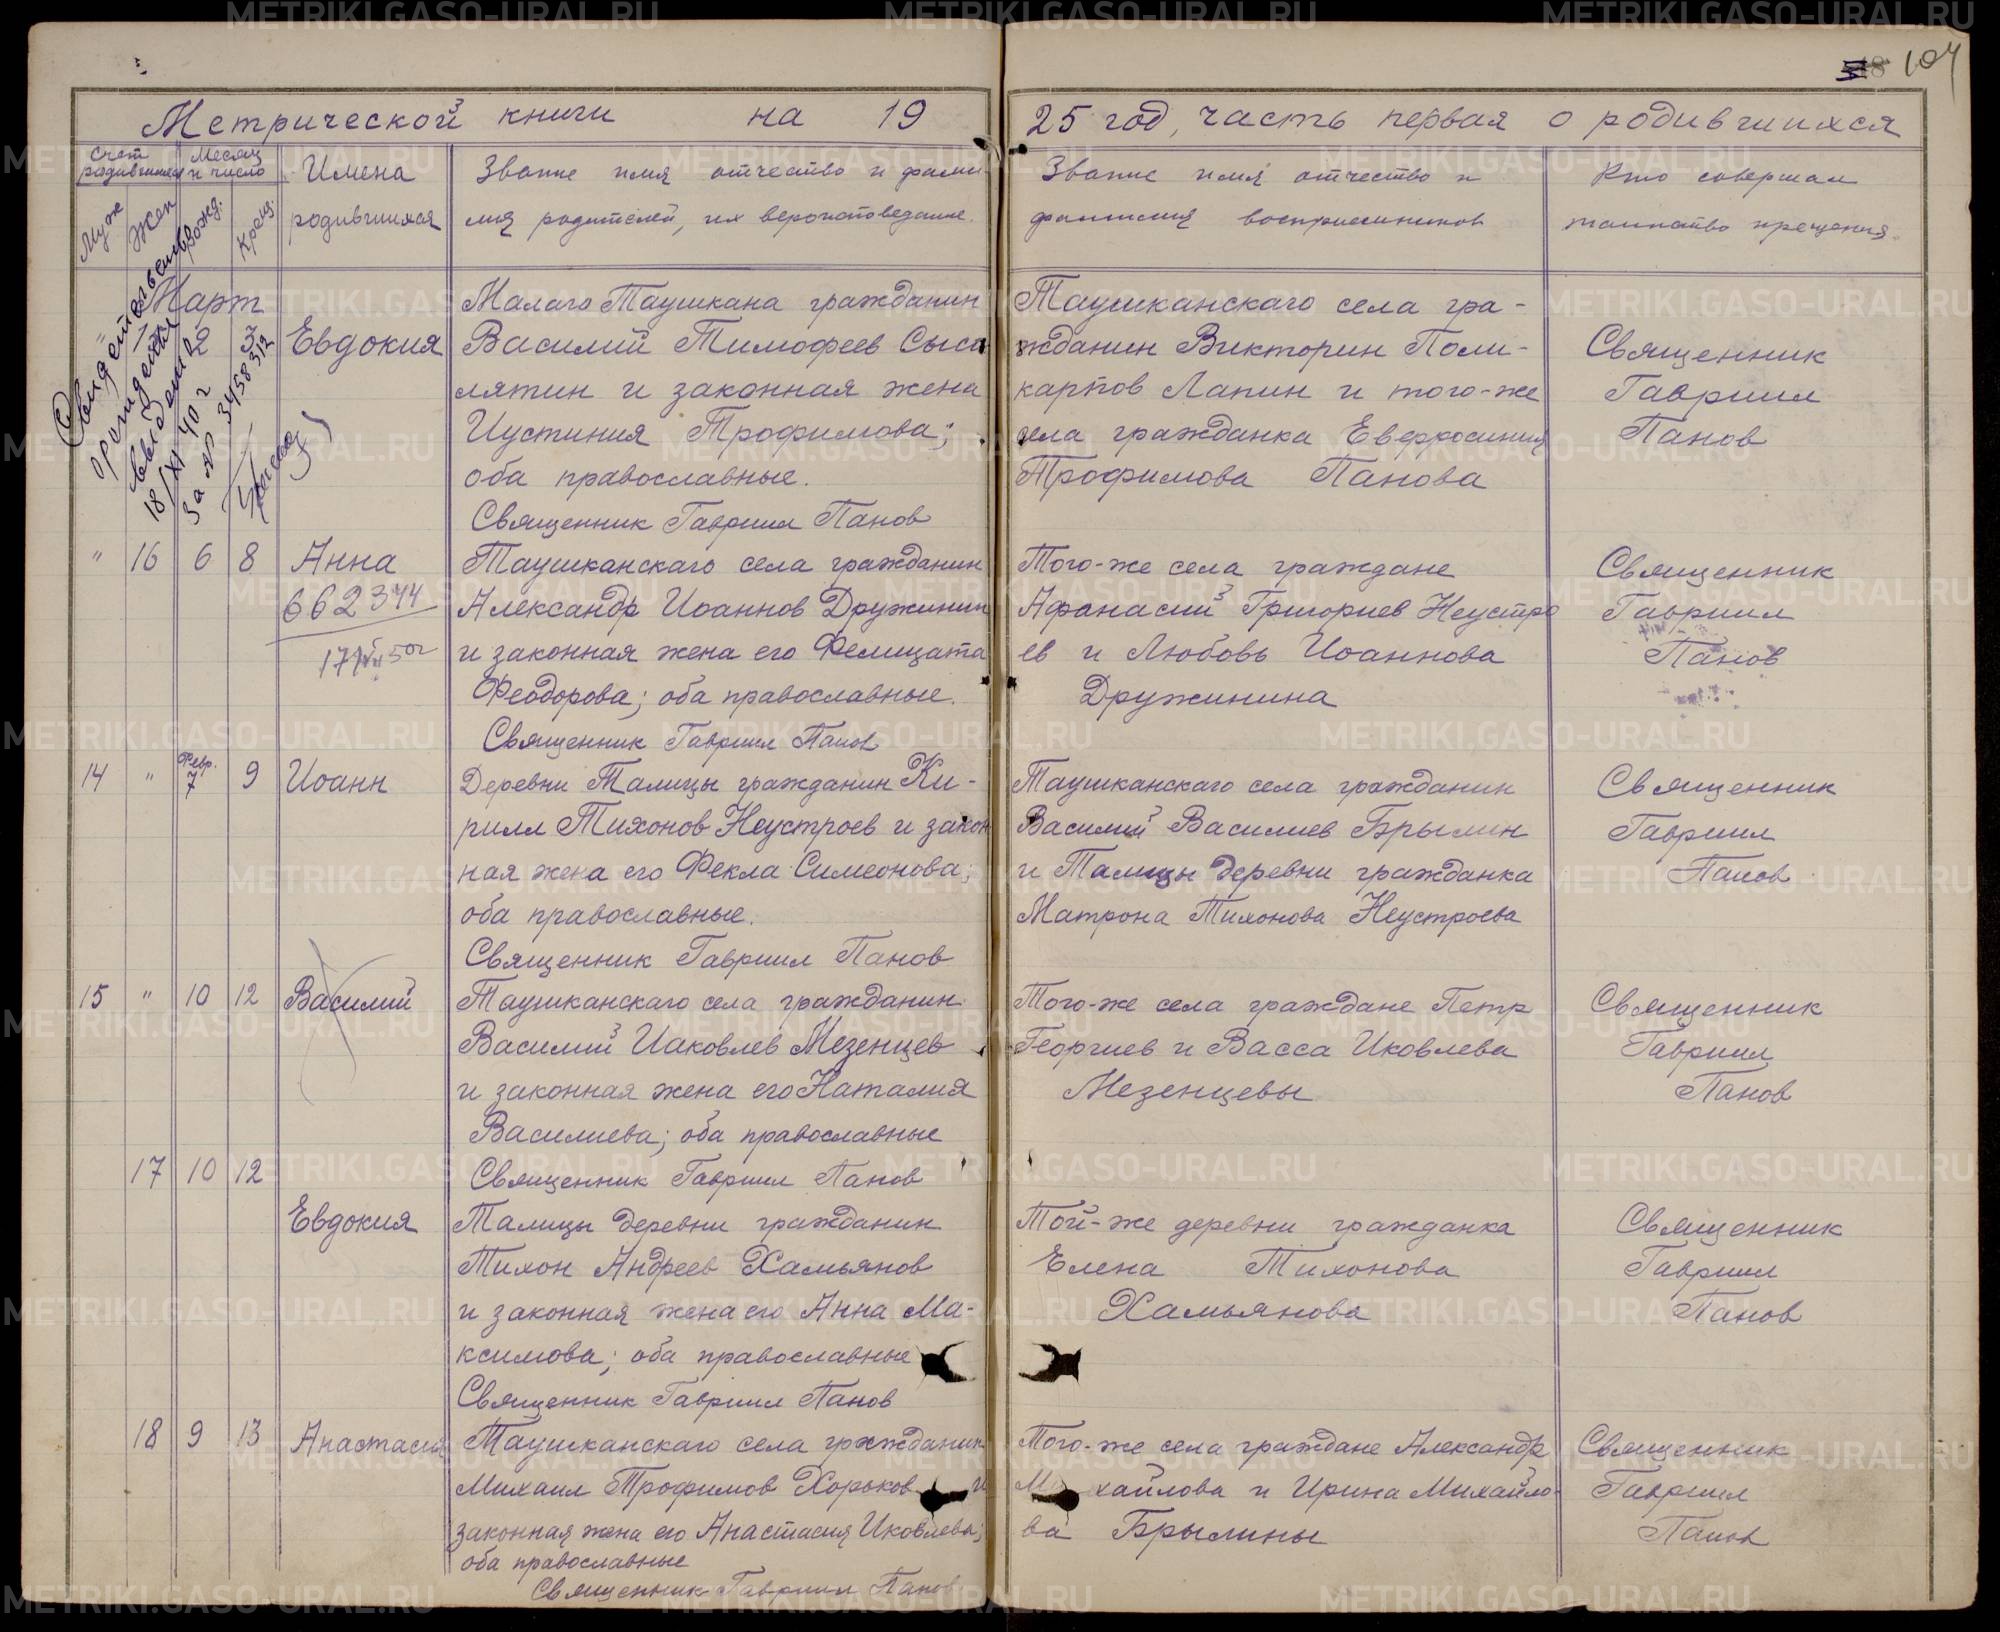 104
Метрической книги на 19 25 год, часть первая о родившихся
Счет родившихся
Месяц и число
Имена родившихся
Звание имя отчество и фами
лия родителей, их вероисповедание.
Звание имя отчество и
фамилия восприемников
Кто совершал
таинство крещения.
Муж
Жен
рожд.
крещ.
Март
2 3 Евдокия
Малаго Таушкана гражданин
Василий Тимофеев Сыс
лятин и законная жена
Иустиния Трофимова;
оба православные.
Священник Гавриил Панов
Таушканскаго села гра-
жданин Викторин Поли-
карпов Лапин и того-же
села гражданка Еверкосиния
Трофимова Панова
Священник
Гавриил
Панов
18/XI 40 г
за №
" 16 6 8 Анна
662344
Таушканскаго села гражданин
Александр Иоаннов Дружинин
и законная жена его Фелицата
Феодорова; оба православные.
Священник Гавриил Панов
Того-же села граждане
Афанасий Григориев Неустро
ев и Любовь Иоаннова
Дружинина
Священник
Гавриил
Панов
14 " Февр. 7 9 Иоанн
Деревни Талицы гражданин Ки-
рилл Тихонов Неустроев и закон
ная жена его Фекла Симеонова;
оба православные.
Священник Гавриил Панов
Таушканскаго села гражданин
Василий Василиев Брылин
и Талицы деревни гражданка
Матрона Тихонова Неустроева
Священник
Гавриил
Панов
15 " 10 12 Василий
Таушканскаго села гражданин
Василий Иаковлев Мезенцев
и законная жена его Наталия
Василиева; оба православные
Священник Гавриил Панов
Того-же села граждане Петр
Георгиев и Васса Иковлева
Мезенцевы
Священник
Гавриил
Панов
17 10 12
Евдокия
Талицы деревни гражданин
Тихон Андреев Хамьянов
и законная жена его Анна Ма-
ксимова; оба православные
Священник Гавриил Панов
Той-же деревни гражданка
Елена Тихонова
Хамьянова
Священник
Гавриил
Панов
18 9 13 Анастасия
Таушканскаго села гражданин
Михаил Трофимов Хорьков и
законная жена его Анастасия Иковлева;
оба православные
Священник Гавриил Панов
Того-же села граждане Александр
Михайлова и Ирина Михайло-
ва Брылины
Священник
Гавриил
Панов
METRIKI.GASO-URAL.RU